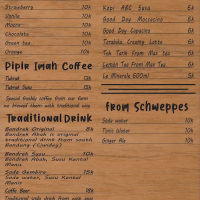 Strawberry 10k
Vanila 10k
Mocca 10k
Chocolate 10k
Green tea 10k
Orange 10k
Pipir Imah Coffee
Tubruk 10k
Tubruk Susu 12k
Special freshly coffee from our farm
Traditional Drink
Bandrek Original 8k
Bandrek Abah is original
traditional drink from south
Bandung (Ciwidey)
Bandrek Susu 10k
Bandrek Abah, Susu Kental
Manis
Soda Gembira 15k
Soda water, Susu Kental
Manis
Coffe Beer 18k
Kopi ABC Susu 5k
Good Day Moccacino 5k
Good Day Capucino 5k
Torabika Creamy Latte 6k
Teh Tarik From Max tea 6k
Lemon Tea From Max Tea 6k
Le Minerale 600ml 5k
from Schweppes
Soda water 10k
Tonic Water 10k
Ginger Ale 10k